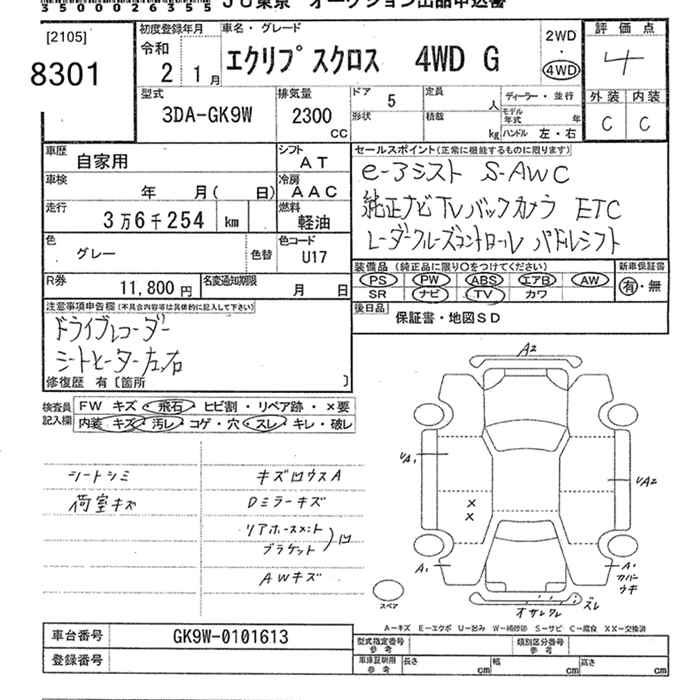 35000026355
JU東京 オークション出品申込書
[2105]
8301
初度登録年月
令和
2 1月
車名・グレード
エクリプスクロス 4WD G
2WD
・
4WD
評価点
4
型式
3DA-GK9W
排気量
2300
cc
ドア 5
形状
定員 人
積載 kg
ディーラー・並行
モデル年式 年
ハンドル 左・右
外装 内装
C C
車歴 自家用
シフト AT
車検 年 月( 日)
冷房 AAC
走行 3万6千254 km
燃料 軽油
色 グレー 色替
色コード U17
R券 11,800円
名変通知期限 月 日
セールスポイント(正常に機能するものに限ります)
e-アシスト S-AWC
純正ナビTVバックカメラ ETC
レーダークルーズコントロール パドルシフト
装備品 (純正品に限り○をつけてください)
PS PW ABS エアB AW
SR ナビ TV カワ
新車保証書
有・無
後日品 保証書・地図SD
注意事項申告欄(不具合内容等は具体的に記入して下さい)
ドライブレコーダー
シートヒーター左右
修復歴 有〔箇所 〕
検査員
記入欄
FW キズ・飛石・ヒビ割・リペア跡・×要
内装 キズ・汚レ・コゲ・穴・スレ・キレ・破レ
シートシミ
荷室キズ
キズ凹ウスA
Dミラーキズ
リアホースメント
ブラケット )凹
AWキズ
A2
UA1
UA2
×
×
A1
A1
カバー
ウキ
スペア
オサレクレ
ズレ
A－キズ E－エクボ U－凹み W－補修跡 S－サビ C－腐食 XX－交換済
車台番号 GK9W-0101613
登録番号
型式指定番号
参考
類別区分番号
参考
車庫証明用
参考
長さ cm
幅 cm
高さ cm